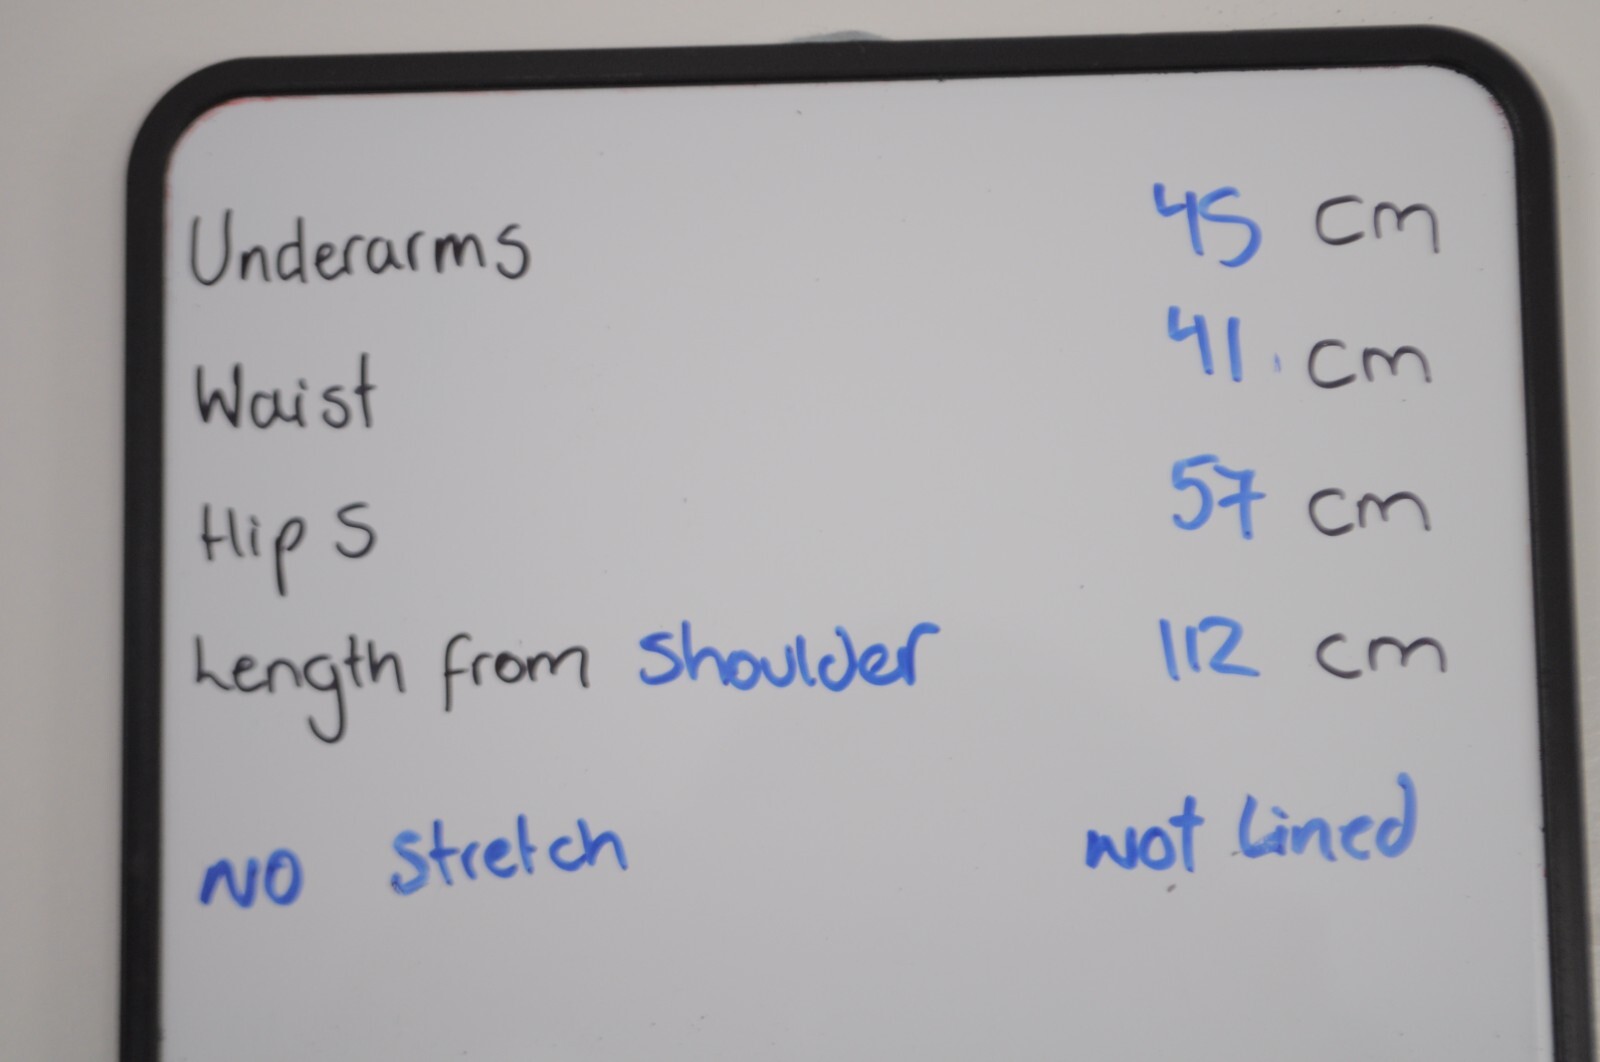 Underarms 45 cm
Waist 41 cm
Hips 57 cm
Length from shoulder 112 cm
NO stretch not lined